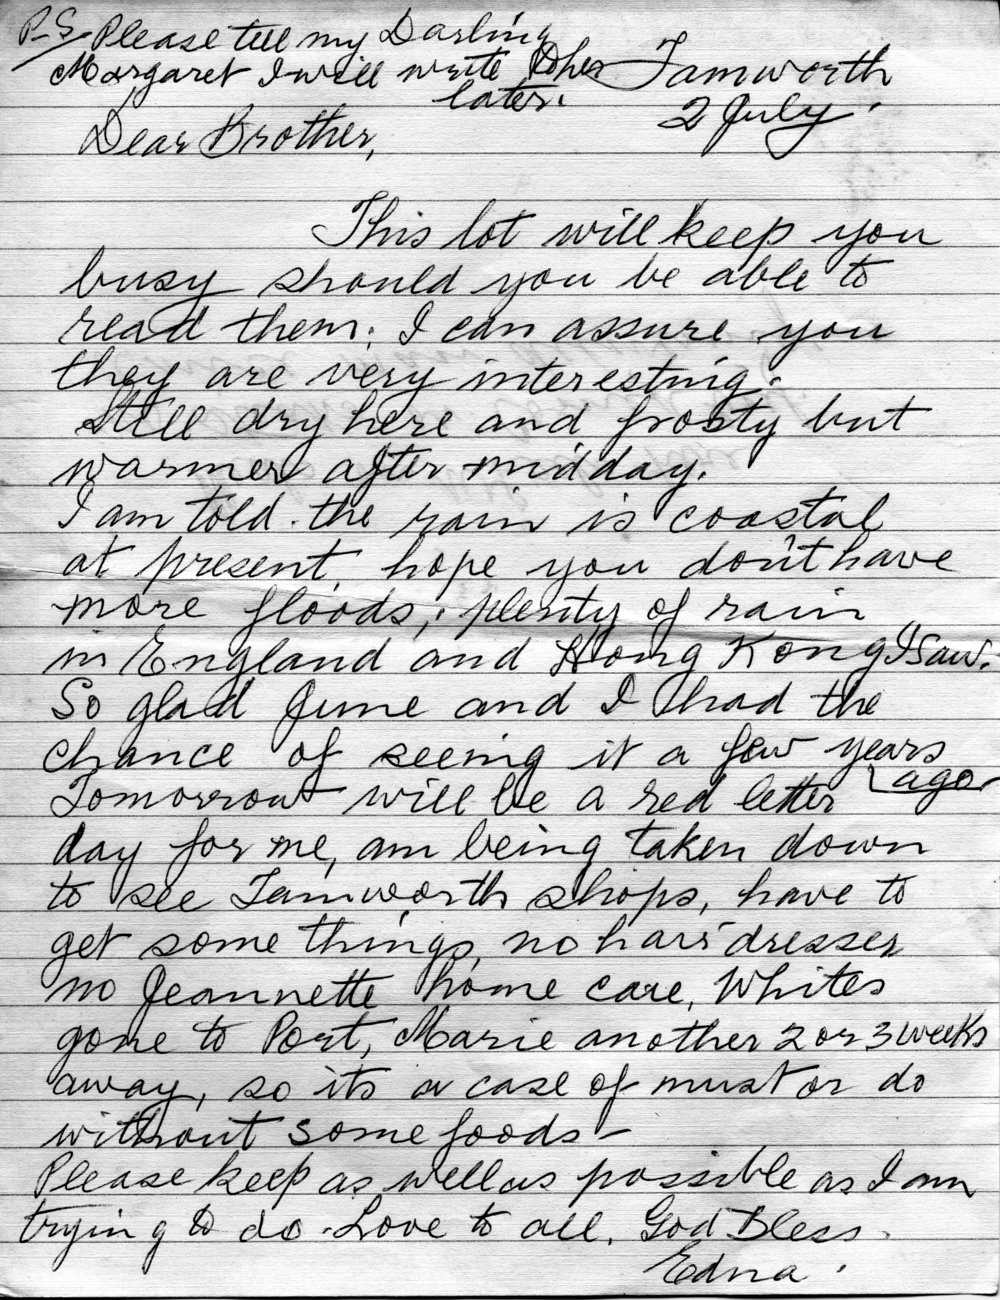 P.S. Please tell my Darling
Margaret I will write to her
later.
Tamworth
2 July.
Dear Brother,
This lot will keep you
busy should you be able to
read them. I can assure you
they are very interesting.
Still dry here and frosty but
warmer after midday.
I am told the rain is coastal
at present, hope you don't have
more floods, plenty of rain
in England and Hong Kong I saw.
So glad June and I had the
chance of seeing it a few years
ago
Tomorrow will be a red letter
day for me, am being taken down
to see Tamworth shops, have to
get some things, no hair dresser
no Jeannette home care, Whites
gone to Port, Marie another 2 or 3 weeks
away, so its a case of must or do
without some foods -
Please keep as well as possible as I am
trying to do. Love to all. God Bless.
Edna.